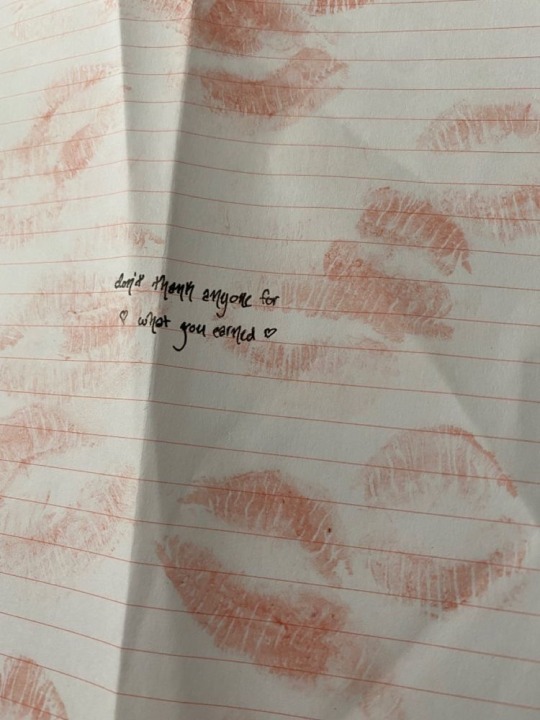 don't thank anyone for
♡ what you earned ♡